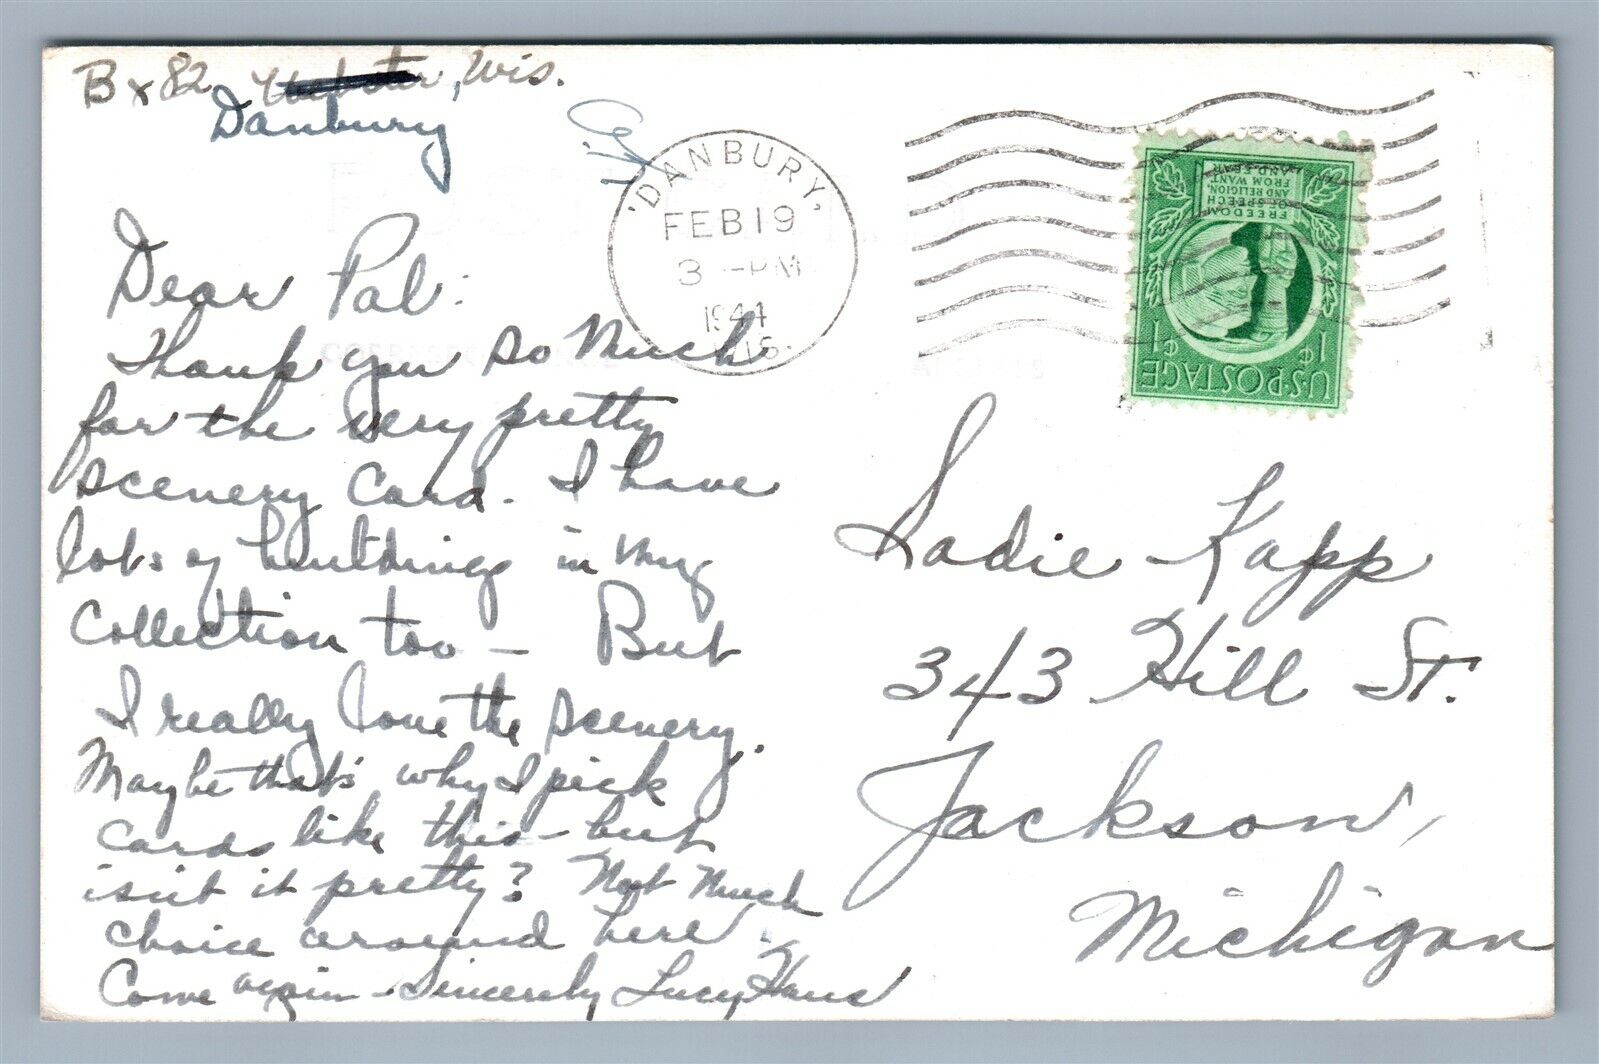 Bx 82 Webster, Wis.
Danbury
DANBURY,
FEB 19
3 -PM
1944
WIS.
FREEDOM
OF SPEECH
AND RELIGION,
FROM WANT
AND FEAR
1¢ 1¢
U.S. POSTAGE
Dear Pal:
Thank you so Much
for the very pretty
scenery card. I have
lots of buildings in my
collection too - But
I really love the scenery.
Maybe that's why I pick
cards like this - but
isn't it pretty? Not Much
choice around here.
Come again - Sincerely Lucy Haus
Sadie Kapp
343 Hill St.
Jackson,
Michigan